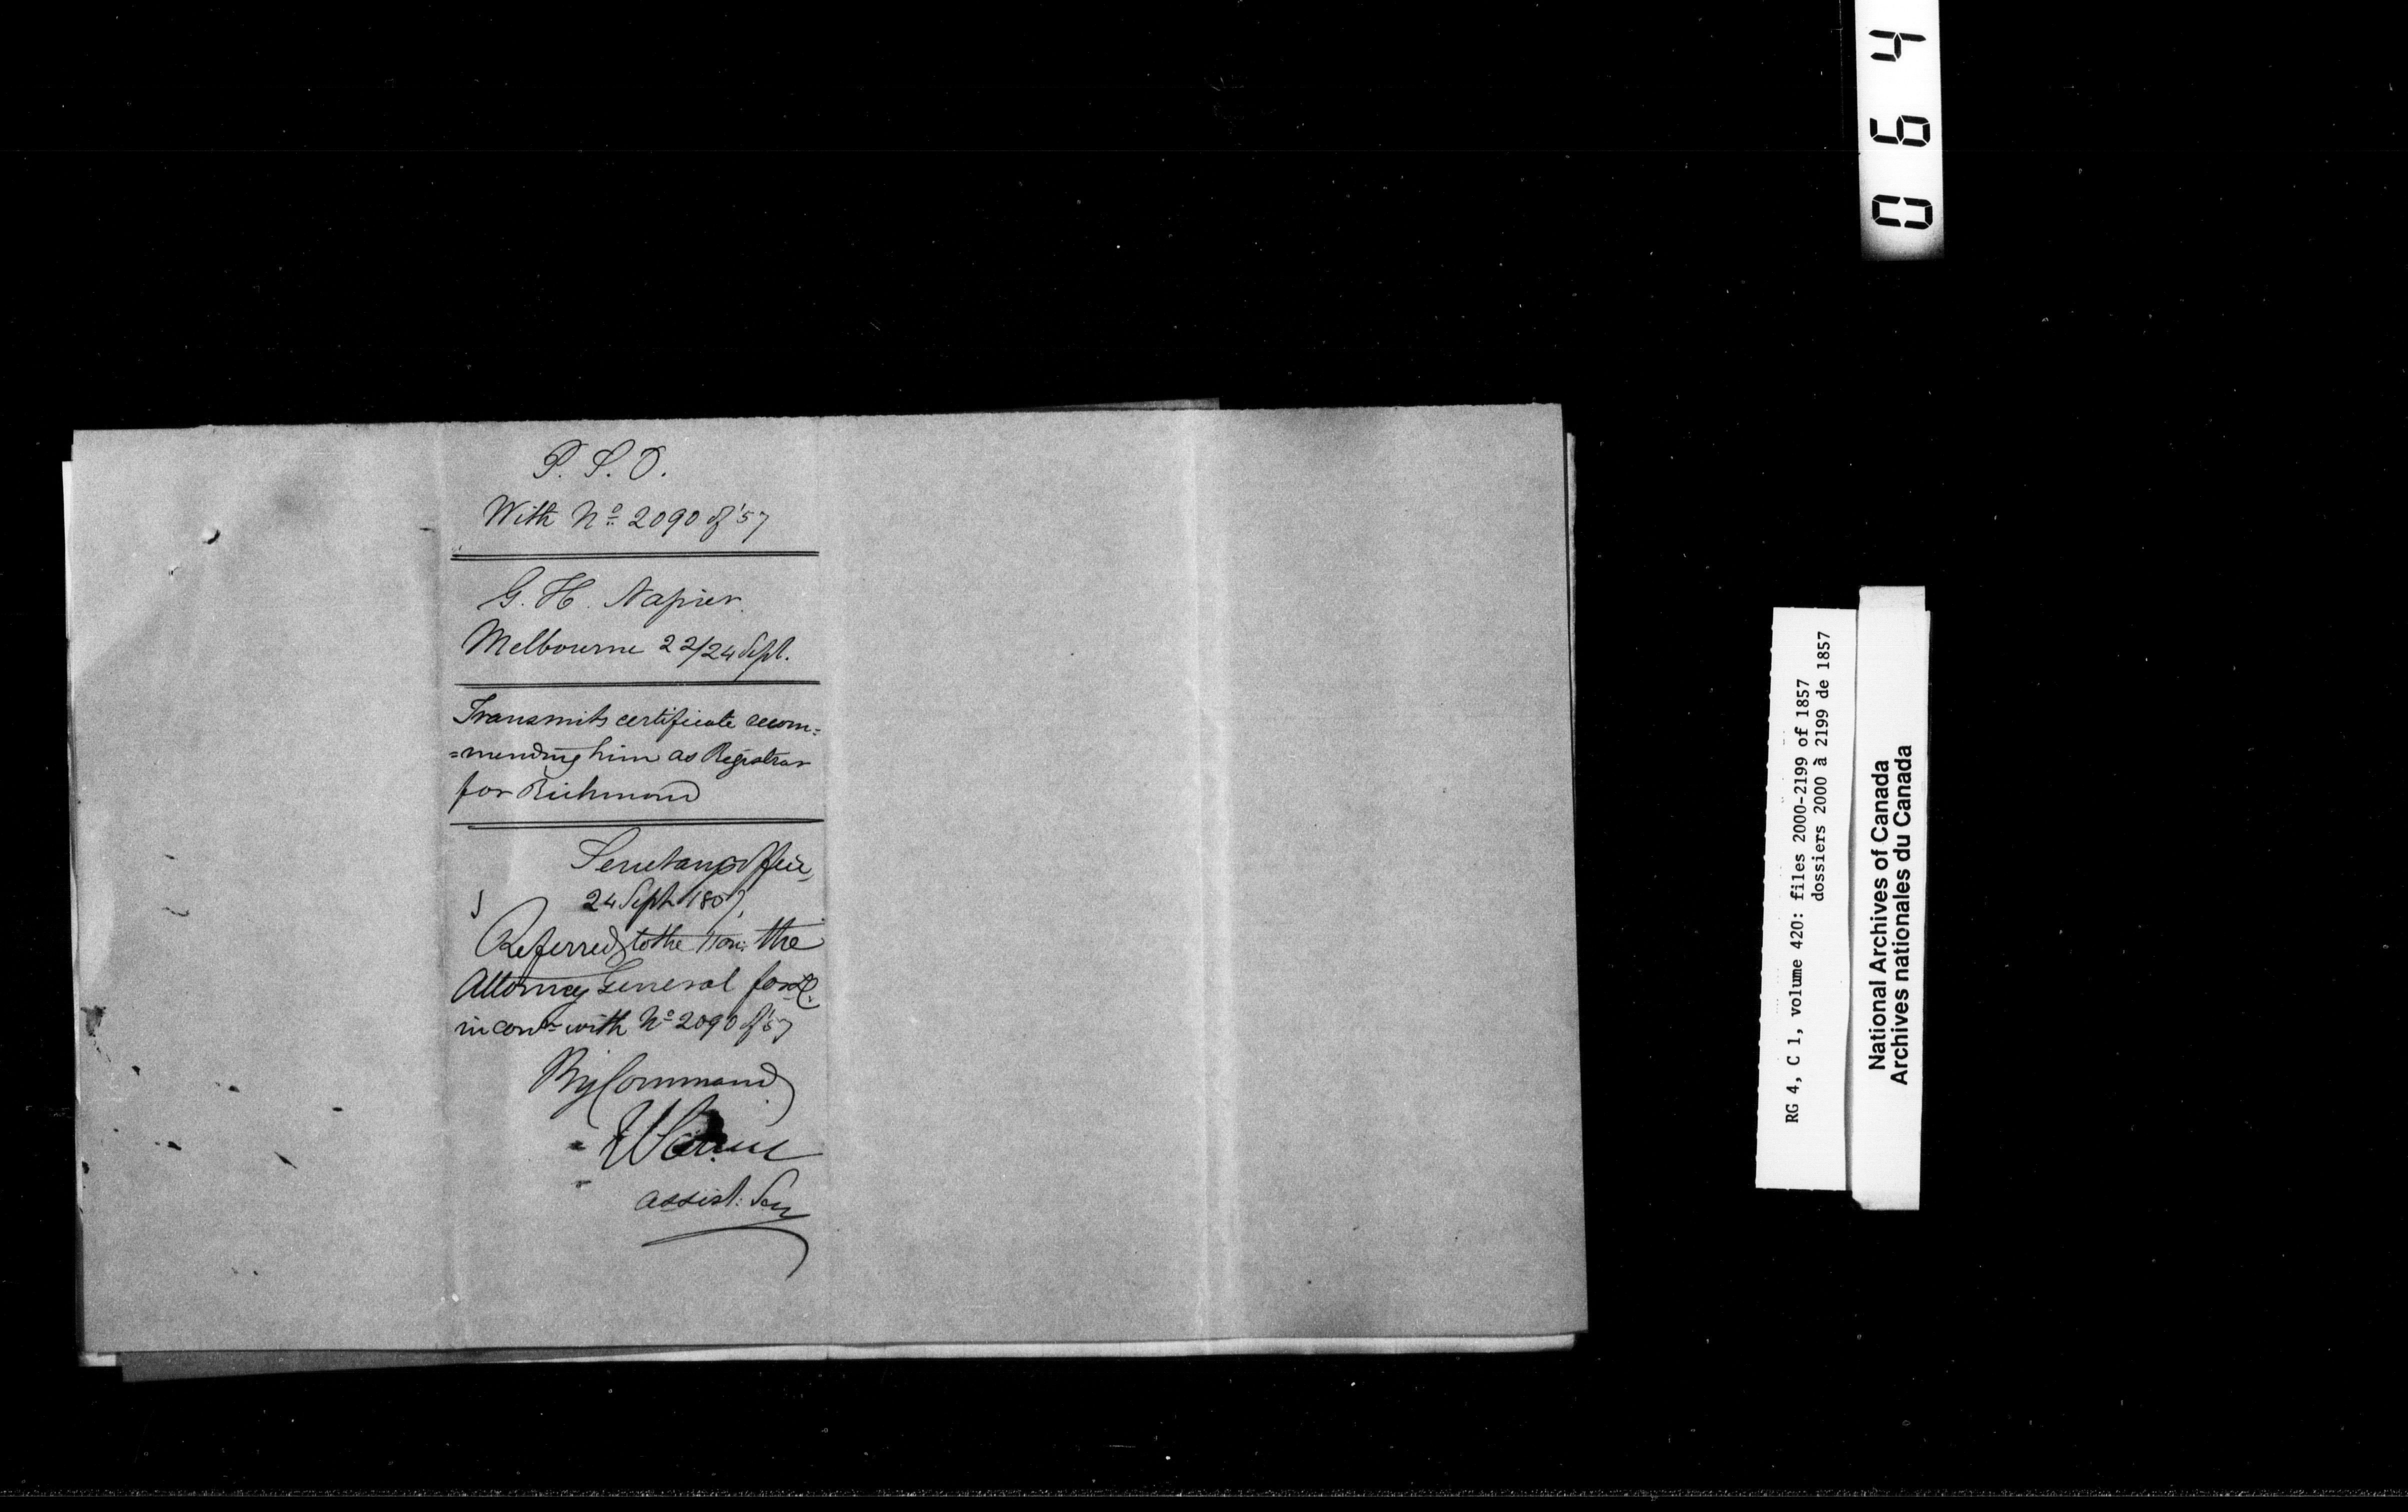 P. S. O.
With No. 2090 of '57
G. H. Napier
Melbourne 22/24 Sept.
Transmits certificate recom=
=mending him as Registrar
for Richmond
Secretary's Office,
24 Sept 1857
Referred to the Hon: the
Attorney General for L. C.
in conn with No. 2090 of '57
By Command
Assist: Secy
064
RG 4, C 1, volume 420: files 2000-2199 of 1857
dossiers 2000 à 2199 de 1857
National Archives of Canada
Archives nationales du Canada